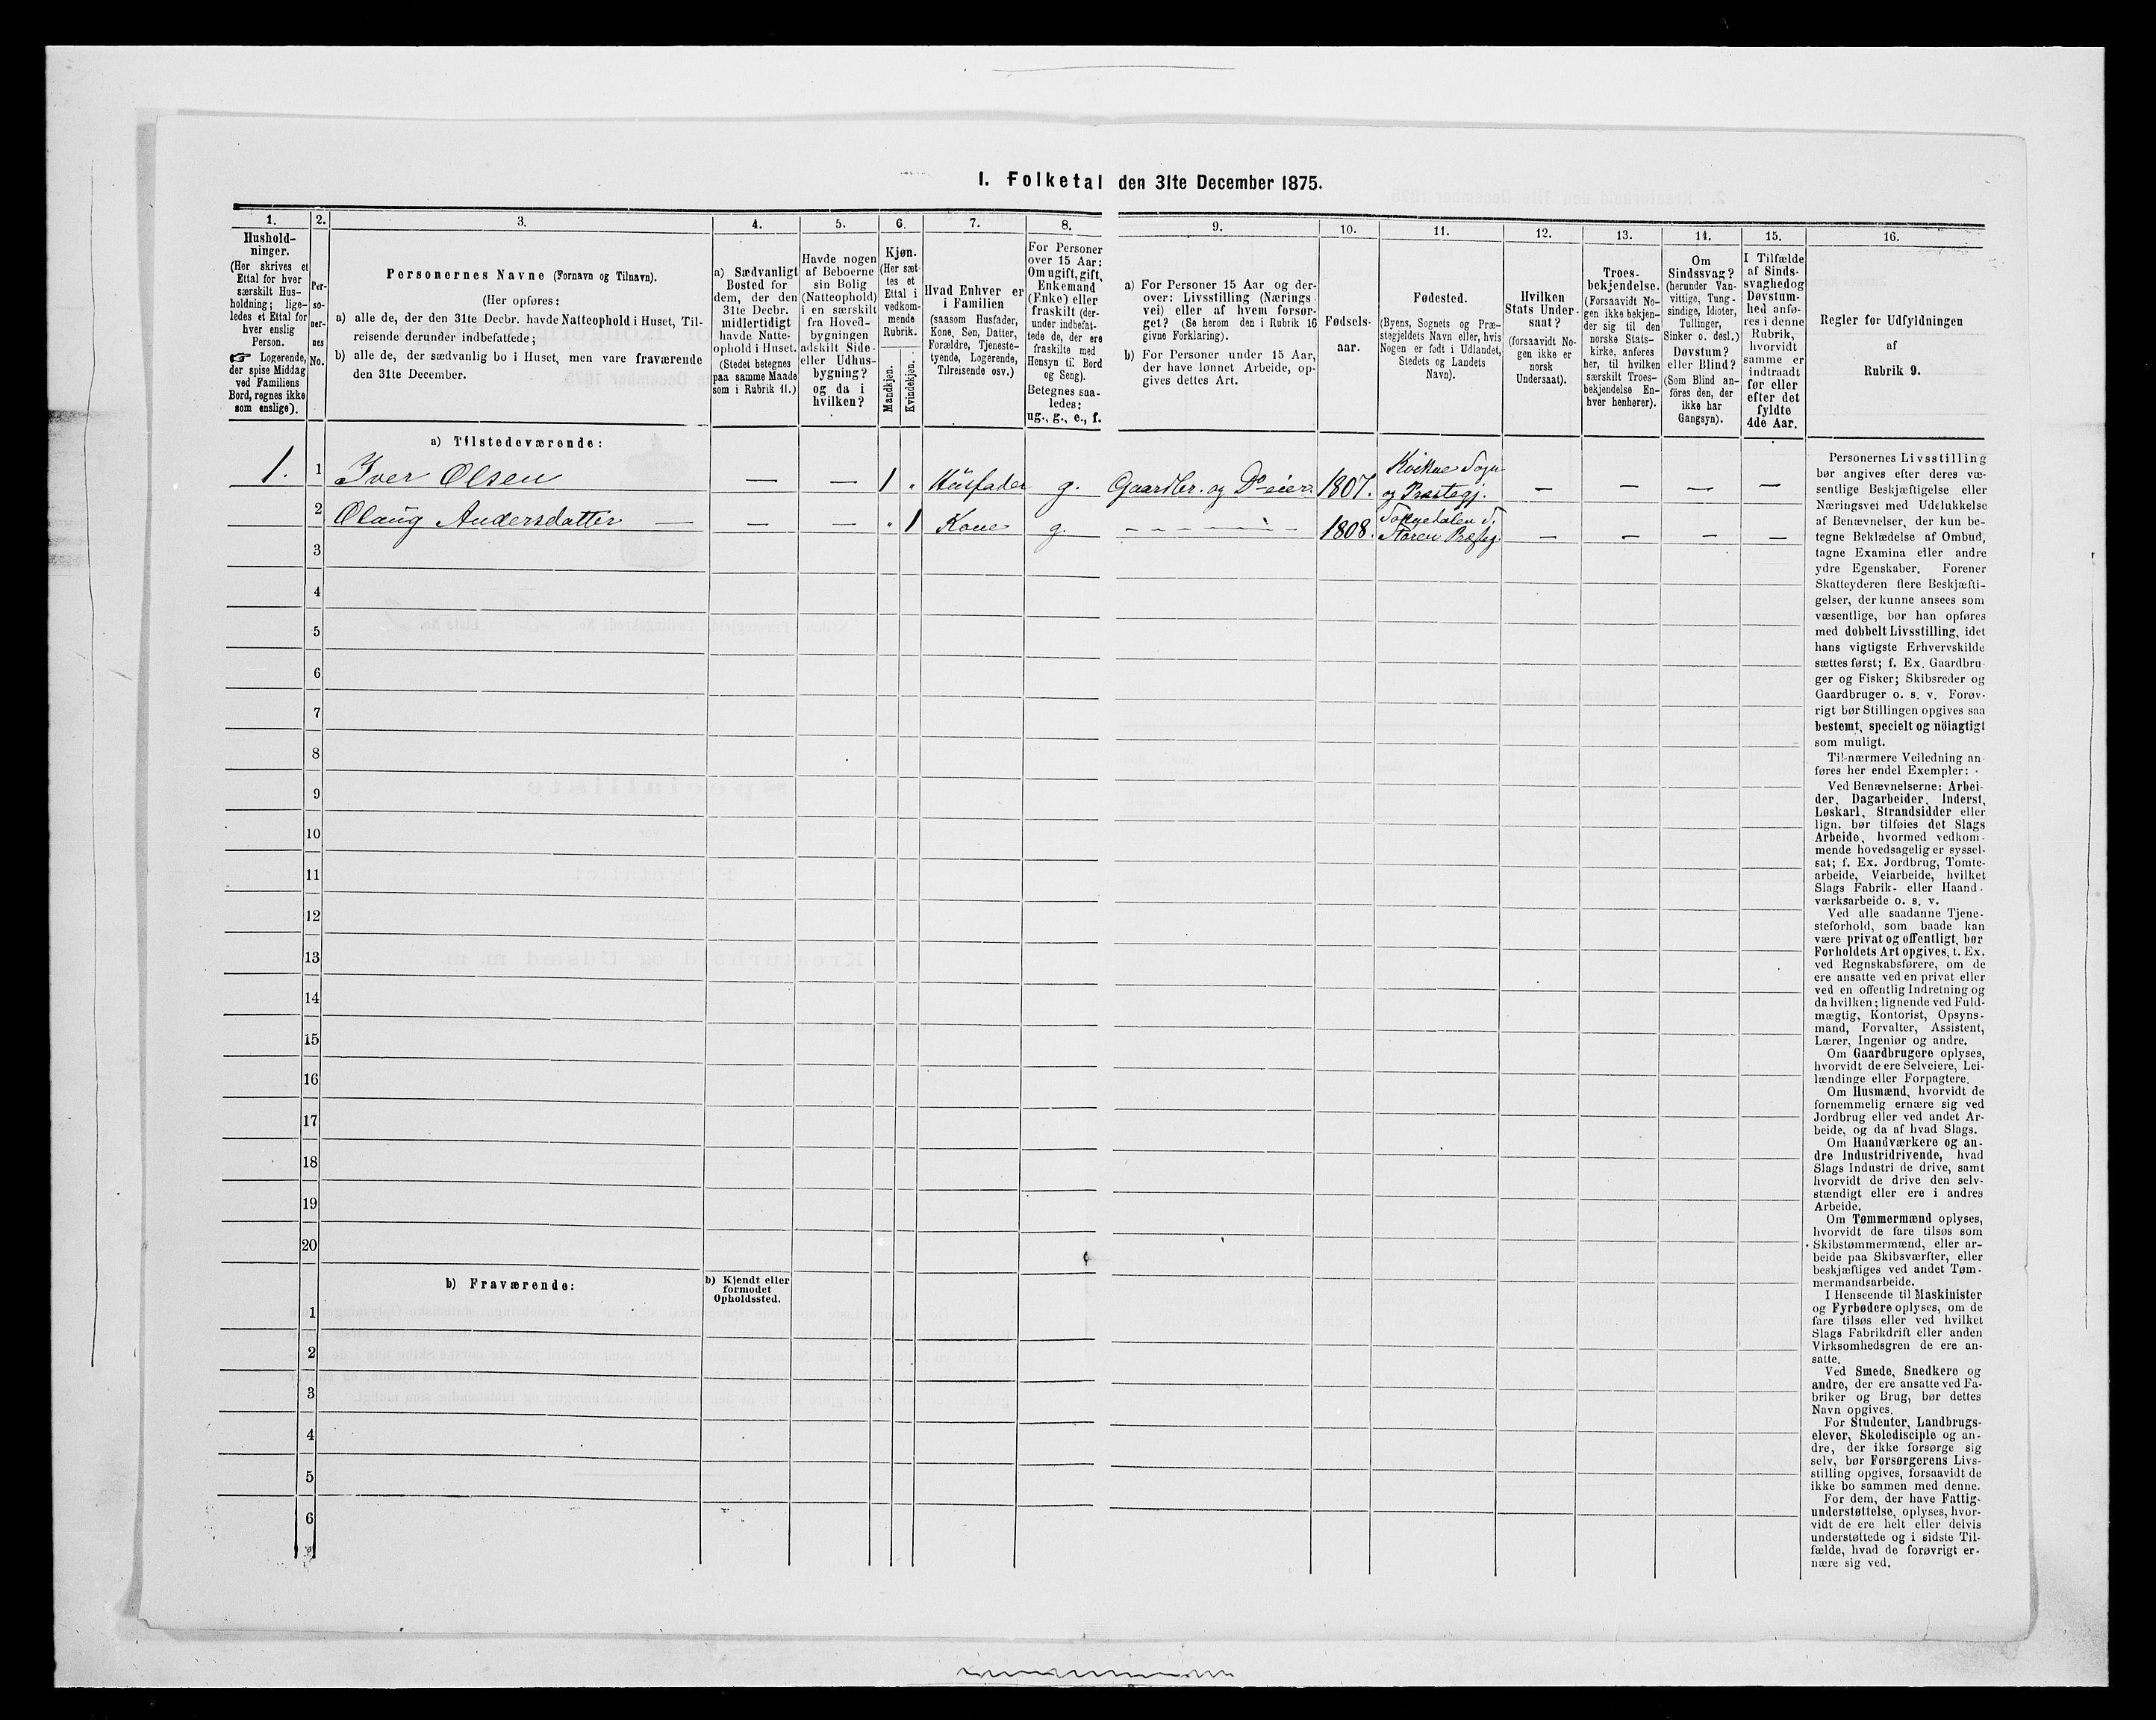 1. Folketal den 31te December 1875.
1.
2.
3.
4.
5.
6.
7.
8.
9.
10.
11.
12.
13.
14.
15.
16.
Hushold-
ninger.
(Her skrives et
Ettal for hver
særskilt Hus-
holdning; lige-
ledes et Ettal for
hver enslig
Person.
☞ Logerende,
der spise Middag
ved Familiens
Bord, regnes ikke
som enslige).
Per-
so-
ner-
nes
No.
Personernes Navne (Fornavn og Tilnavn).
(Her opføres:
a) alle de, der den 31te Decbr. havde Natteophold i Huset, Til-
reisende derunder indbefattede;
b) alle de, der sædvanlig bo i Huset, men vare fraværende
den 31te December.
a) Sædvanligt
Bosted for
dem, der den
31te Decbr.
midlertidigt
havde Natte-
ophold i Huset.
(Stedet betegnes
paa samme Maade
som i Rubrik 11.)
Havde nogen
af Beboerne
sin Bolig
(Natteophold)
i en særskilt
fra Hoved-
bygningen
adskilt Side-
eller Udhus-
bygning?
og da i
hvilken?
Kjøn.
(Her sæt-
tes et
Ettal i
vedkom-
mende
Rubrik.
Mandkjøn.
Kvindekjøn.
Hvad Enhver er
i Familien
(saasom Husfader,
Kone, Søn, Datter,
Forældre, Tjeneste-
tyende, Logerende,
Tilreisende osv.)
For Personer
over 15 Aar:
Om ugift, gift,
Enkemand
(Enke) eller
fraskilt (der-
under indbefat-
tede de, der ere
fraskilte med
Hensyn til Bord
og Seng).
Betegnes saa-
ledes:
ug., g., e., f.
a) For Personer 15 Aar og der-
over: Livsstilling (Nærings-
vei) eller af hvem forsør-
get? (Se herom den i Rubrik 16
givne Forklaring).
b) For Personer under 15 Aar,
der have lønnet Arbeide, op-
gives dettes Art.
Fødsels-
aar.
Fødested.
(Byens, Sognets og Præ-
stegjeldets Navn eller, hvis
Nogen er født i Udlandet,
Stedets og Landets
Navn).
Hvilken
Stats Under-
saat?
(forsaavidt No-
gen ikke er
norsk
Undersaat).
Troes-
bekjendelse.
(Forsaavidt No-
gen ikke bekjen-
der sig til den
norske Stats-
kirke, anføres
her, til hvilken
særskilt Troes-
bekjendelse En-
hver henhører).
Om
Sindssvag?
(herunder Van-
vittige, Tung-
sindige, Idioter,
Tullinger,
Sinker o. desl.)
Døvstum?
eller Blind?
(Som Blind an-
föres den, der
ikke har
Gangsyn).
I Tilfælde
af Sinds-
svaghed og
Døvstum-
hed anfø-
res i denne
Rubrik,
hvorvidt
samme er
indtraadt
før eller
efter det
fyldte
4de Aar.
Regler for Udfyldningen
af
Rubrik 9.
a) Tilstedeværende:
1. 1 Iver Olsen — — 1 „ Husfader g. Gaardbr. og Do eier. 1807. Kvikne Sogn og Præstegj. — — — —
2 Olaug Andersdatter — — — „ 1 Kone g. – – – – – 1808. Soknedalen S. Støren Præstg. — — — —
3
4
5
6
7
8
9
10
11
12
13
14
15
16
17
18
19
20
b) Fraværende:
b) Kjendt eller
formodet
Opholdssted.
1
2
3
4
5
6
Personernes Livsstilling
bør angives efter deres væ-
sentlige Beskjæftigelse eller
Næringsvei med Udelukkelse
af Benævnelser, der kun be-
tegne Beklædelse af Ombud,
tagne Examina eller andre
ydre Egenskaber. Forener
Skatteyderen flere Beskjæfti-
gelser, der kunne ansees som
væsentlige, bør han opføres
med dobbelt Livsstilling, idet
hans vigtigste Erhvervskilde
sættes først; f. Ex. Gaardbru-
ger og Fisker; Skibsreder og
Gaardbruger o. s. v. Forøv-
rigt bør Stillingen opgives saa
bestemt, specielt og nöiagtigt
som muligt.
Til nærmere Veiledning an-
føres her endel Exempler:
Ved Benævnelserne: Arbei-
der, Dagarbeider, Inderst,
Løskarl, Strandsidder eller
lign. bør tilføies det Slags
Arbeide, hvormed vedkom-
mende hovedsagelig er syssel-
sat; f. Ex. Jordbrug, Tomte-
arbeide, Veiarbeide, hvilket
Slags Fabrik- eller Haand-
værksarbeide o. s. v.
Ved alle saadanne Tjene-
steforhold, som baade kan
være privat og offentligt, bør
Forholdets Art opgives, t. Ex.
ved Regnskabsførere, om de
ere ansatte ved en privat eller
ved en offentlig Indretning og
da hvilken; lignende ved Fuld-
mægtig, Kontorist, Opsyns-
mand, Forvalter, Assistent,
Lærer, Ingeniør og andre.
Om Gaardbrugere oplyses,
hvorvidt de ere Selveiere, Lei-
lændinge eller Forpagtere.
Om Husmænd, hvorvidt de
fornemmelig ernære sig ved
Jordbrug eller ved andet Ar-
beide, og da af hvad Slags.
Om Haandværkere og an-
dre Industridrivende, hvad
Slags Industri de drive, samt
hvorvidt de drive den selv-
stændigt eller ere i andres
Arbeide.
Om Tømmermænd oplyses,
hvorvidt de fare tilsøs som
Skibstømmermænd, eller ar-
beide paa Skibsværfter, eller
beskjæftiges ved andet Tøm-
mermandsarbeide.
I Henseende til Maskinister
og Fyrbødere oplyses, om de
fare tilsøs eller ved hvilket
Slags Fabrikdrift eller anden
Virksomhedsgren de ere an-
satte.
Ved Smede, Snedkere og
andre, der ere ansatte ved Fa-
briker og Brug, bør dettes
Navn opgives.
For Studenter, Landbrugs-
elever, Skoledisciple og an-
dre, der ikke forsørge sig
selv, bør Forsørgerens Livs-
stilling opgives, forsaavidt de
ikke bo sammen med denne.
For dem, der have Fattig-
understøttelse, oplyses, hvor-
vidt de ere helt eller delvis
understøttede og i sidste Til-
fælde, hvad de forøvrigt er-
nære sig ved.